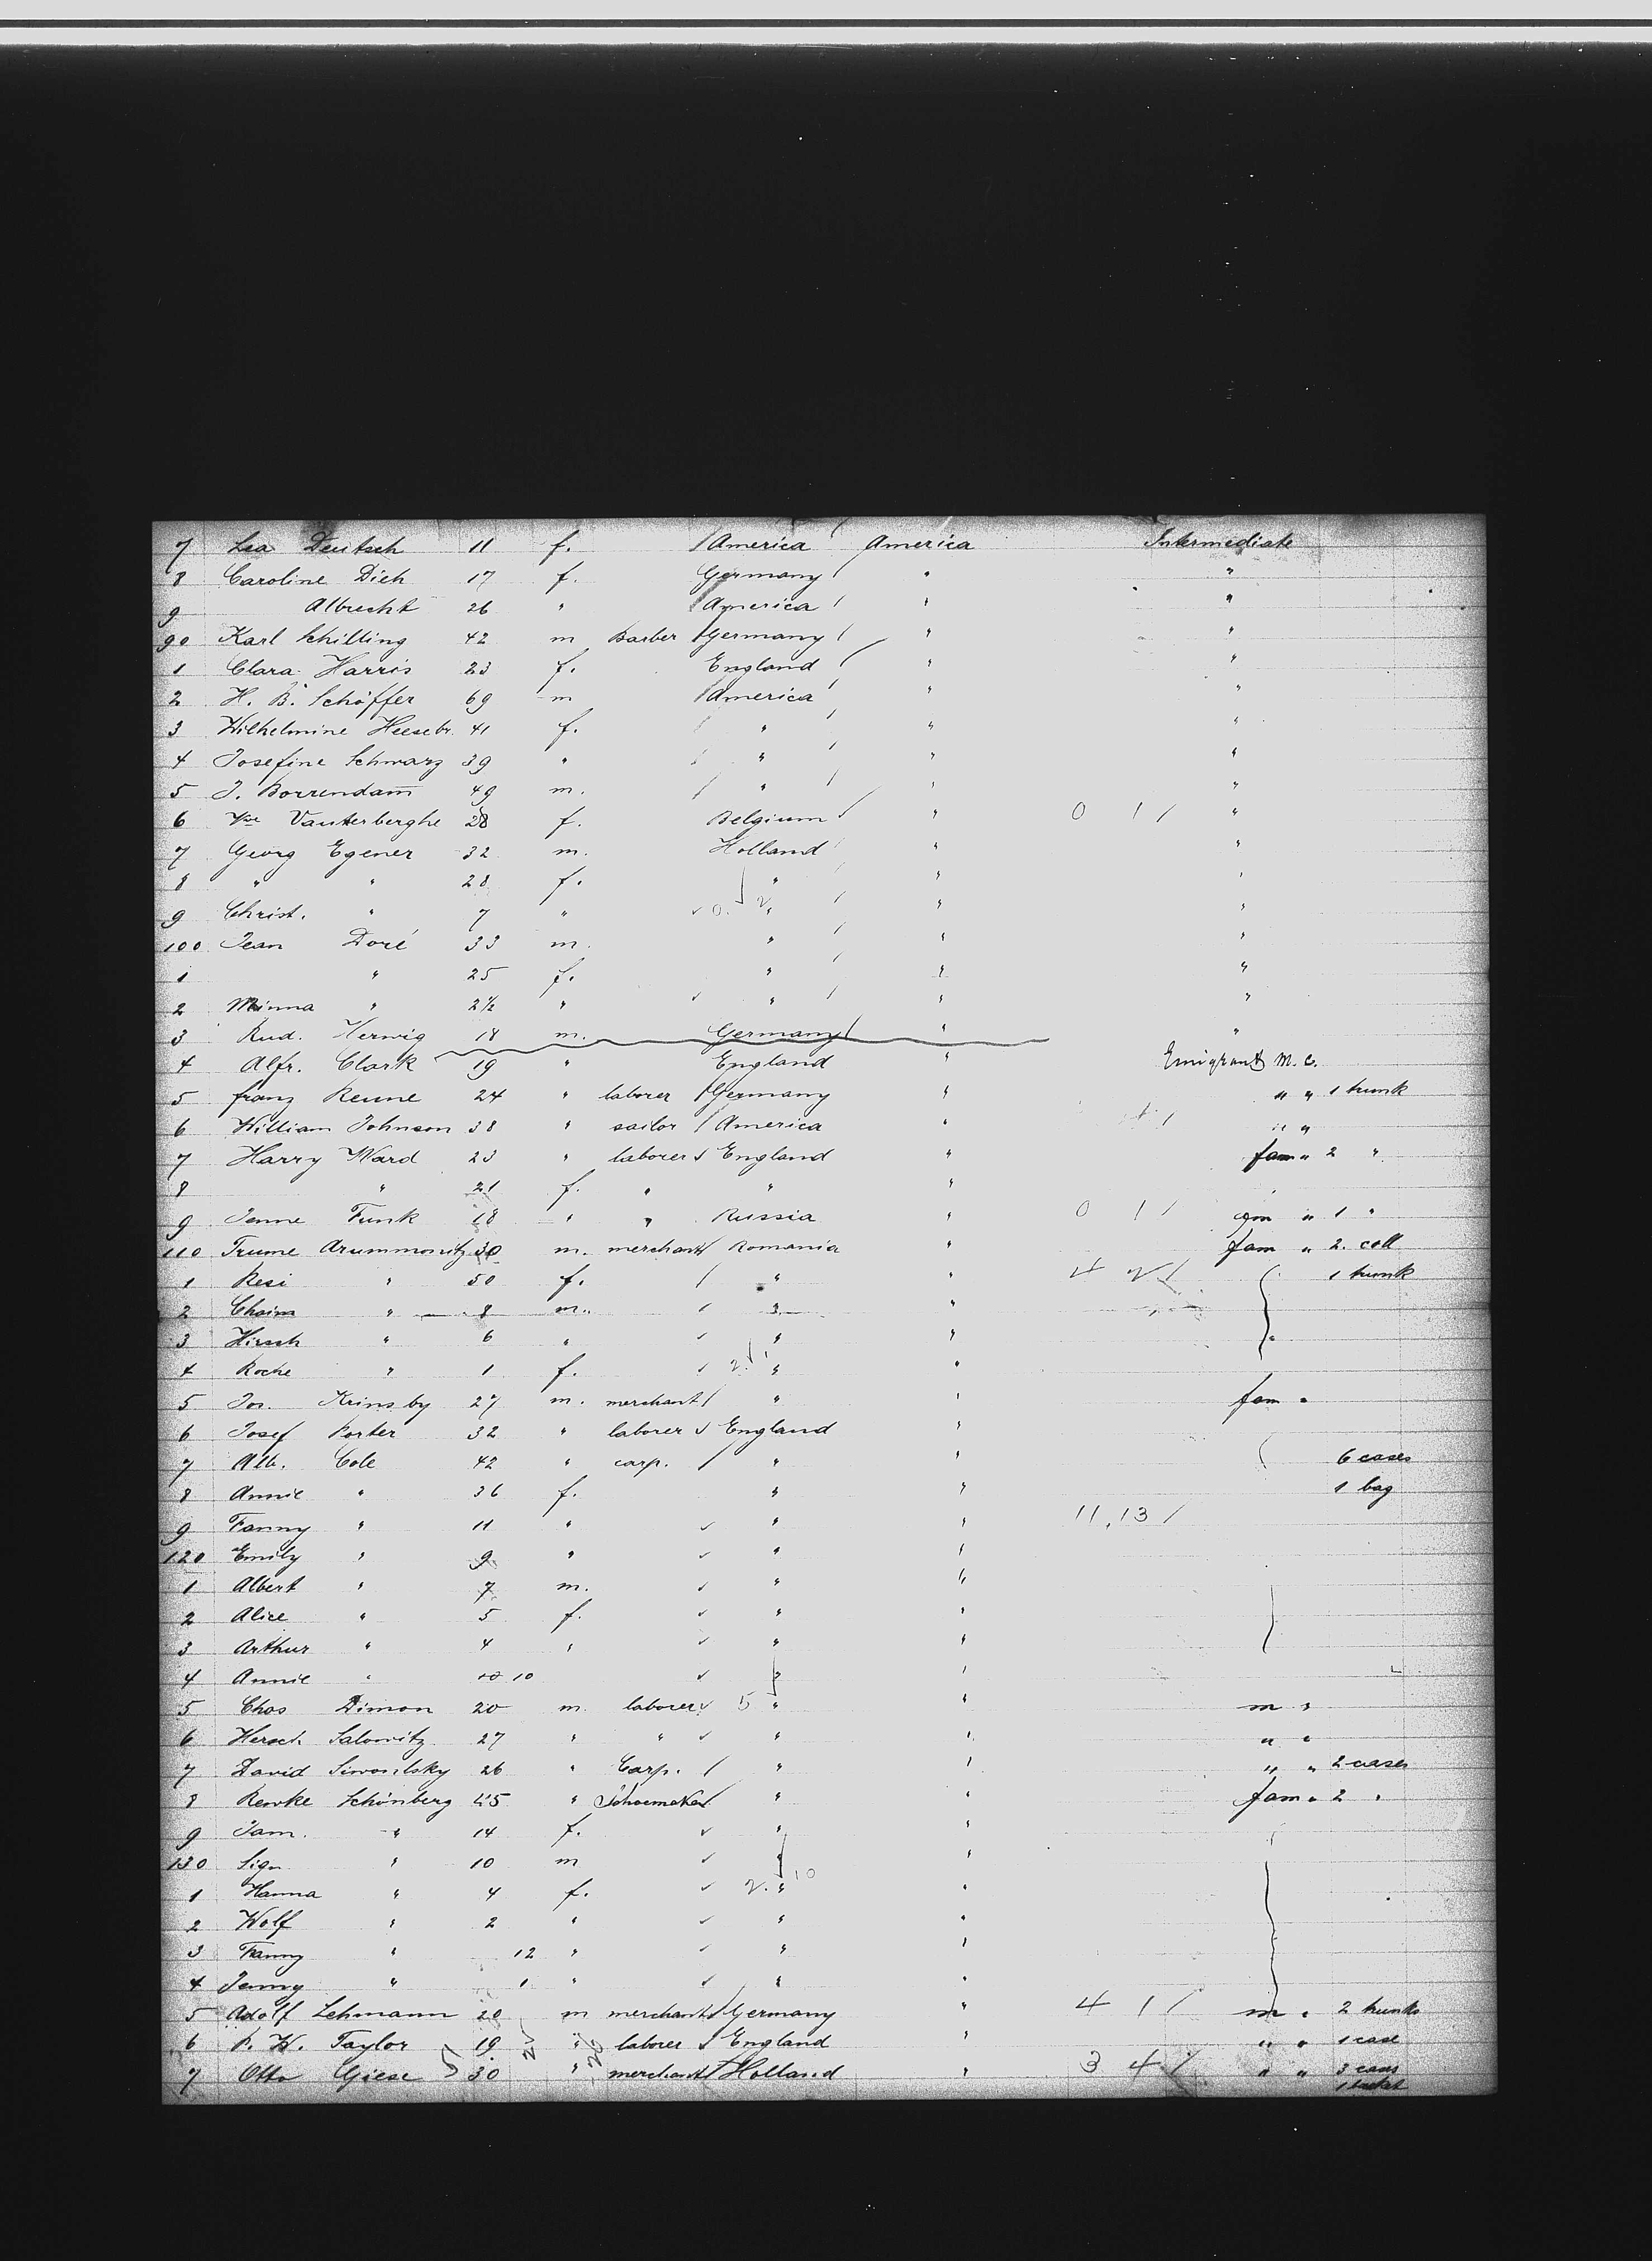 7 Lea Deutsch 11 f. America America Intermediate
8 Caroline Dieh 17 f. Germany " "
9 Albrecht 26 " America " "
90 Karl Schilling 42 m Barber Germany " "
1 Clara Harris 23 f. England " "
2 H. B. Schöffer 69 m America " "
3 Wilhelmine Heesebr. 41 f. " " "
4 Josefine Schwarz 39 " " " "
5 J. Borrendam 49 m. " " "
6 Vanterberghe 28 f. Belgium " 0 1 / "
7 Georg Egener 32 m. Holland " "
8 " " 28 f. " " "
9 Christ. " 7 " 0. 2 " " "
100 Jean Doré 33 m. " " "
1 " 25 f. " " "
2 Minna " 2½ " " " "
3 Rud. Herwig 18 m. Germany " "
4 Alfr. Clark 19 " England " Emigrant m. c.
5 franz Reune 24 " laborer Germany " " " 1 trunk
6 William Johnson 38 " sailor America " " "
7 Harry Ward 23 " laborer England " fam " 2 "
8 " 21 f. " " "
9 Jenne Funk 18 " " Russia " 0 1 / " 1 "
110 Trume Arummonitz 30 m. merchant Romania " fam " 2. coll
1 Resi " 50 f. " " 4 2 / 1 trunk
2 Chaim " 8 m. " "
3 Hirsch " 6 " " "
4 Roche " 1 f. 2. " "
5 Jos. Krinsby 27 m. merchant " " fam "
6 Josef Porter 32 " laborer England "
7 Alb. Cole 42 " carp. " " 6 cases
8 Annie " 36 f. " " 1 bag
9 Fanny " 11 " " " 11, 13 /
120 Emily " 9 " " "
1 Albert " 7 m. " "
2 Alice " 5 f. " "
3 Arthur " 4 " " "
4 Annie " 10 " "
5 Chas Dimon 20 m. laborer 5 " " m "
6 Hersch Salowitz 27 " " " " " "
7 David Siwonlsky 26 " Carp. " " " " 2 cases
8 Rewke Schönberg 45 " Schoemaker " " fam " 2 "
9 Jam. " 14 f. " "
130 Sign " 10 m " "
1 Hanna " 4 f. 2. " 10 "
2 Wolf " 2 " " "
3 Fanny " 12 " " "
4 Jenny " 1 " " "
5 Adolf Lehmann 20 m merchant Germany " 4 1 / m " 2 trunks
6 P. W. Taylor 19 " laborer England " " " 1 case
7 Otto Giese 30 " merchant Holland " 3 4 / " " 3 cases